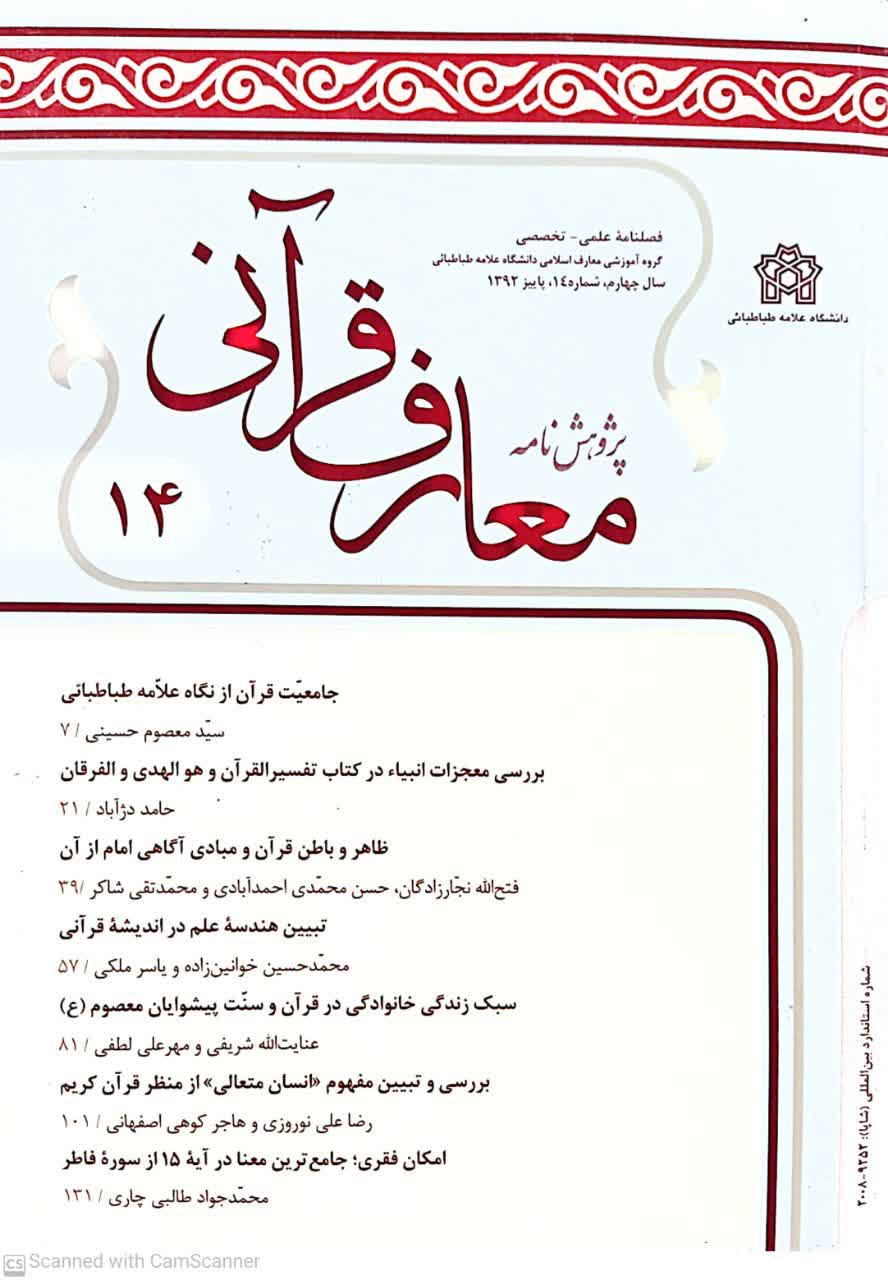 فصلنامهٔ علمی - تخصصی
گروه آموزشی معارف اسلامی دانشگاه علامه طباطبائی
سال چهارم، شماره ۱٤، پاییز ۱۳۹۲
دانشگاه علامه طباطبائی
پژوهش‌نامه
معارف قرآنی
۱۴
جامعیّت قرآن از نگاه علاّمه طباطبائی
سیّد معصوم حسینی / ۷
بررسی معجزات انبیاء در کتاب تفسیرالقرآن و هو الهدی و الفرقان
حامد دژآباد / ۲۱
ظاهر و باطن قرآن و مبادی آگاهی امام از آن
فتح‌الله نجّارزادگان، حسن محمّدی احمدآبادی و محمّدتقی شاکر / ۳۹
تبیین هندسهٔ علم در اندیشهٔ قرآنی
محمّدحسین خوانین‌زاده و یاسر ملکی / ۵۷
سبک زندگی خانوادگی در قرآن و سنّت پیشوایان معصوم (ع)
عنایت‌الله شریفی و مهرعلی لطفی / ۸۱
بررسی و تبیین مفهوم «انسان متعالی» از منظر قرآن کریم
رضا علی نوروزی و هاجر کوهی اصفهانی / ۱۰۱
امکان فقری؛ جامع‌ترین معنا در آیهٔ ۱۵ از سورهٔ فاطر
محمّدجواد طالبی چاری / ۱۳۱
شماره استاندارد بین‌المللی (شاپا): ۹۲۵۲-۲۰۰۸
CS Scanned with CamScanner